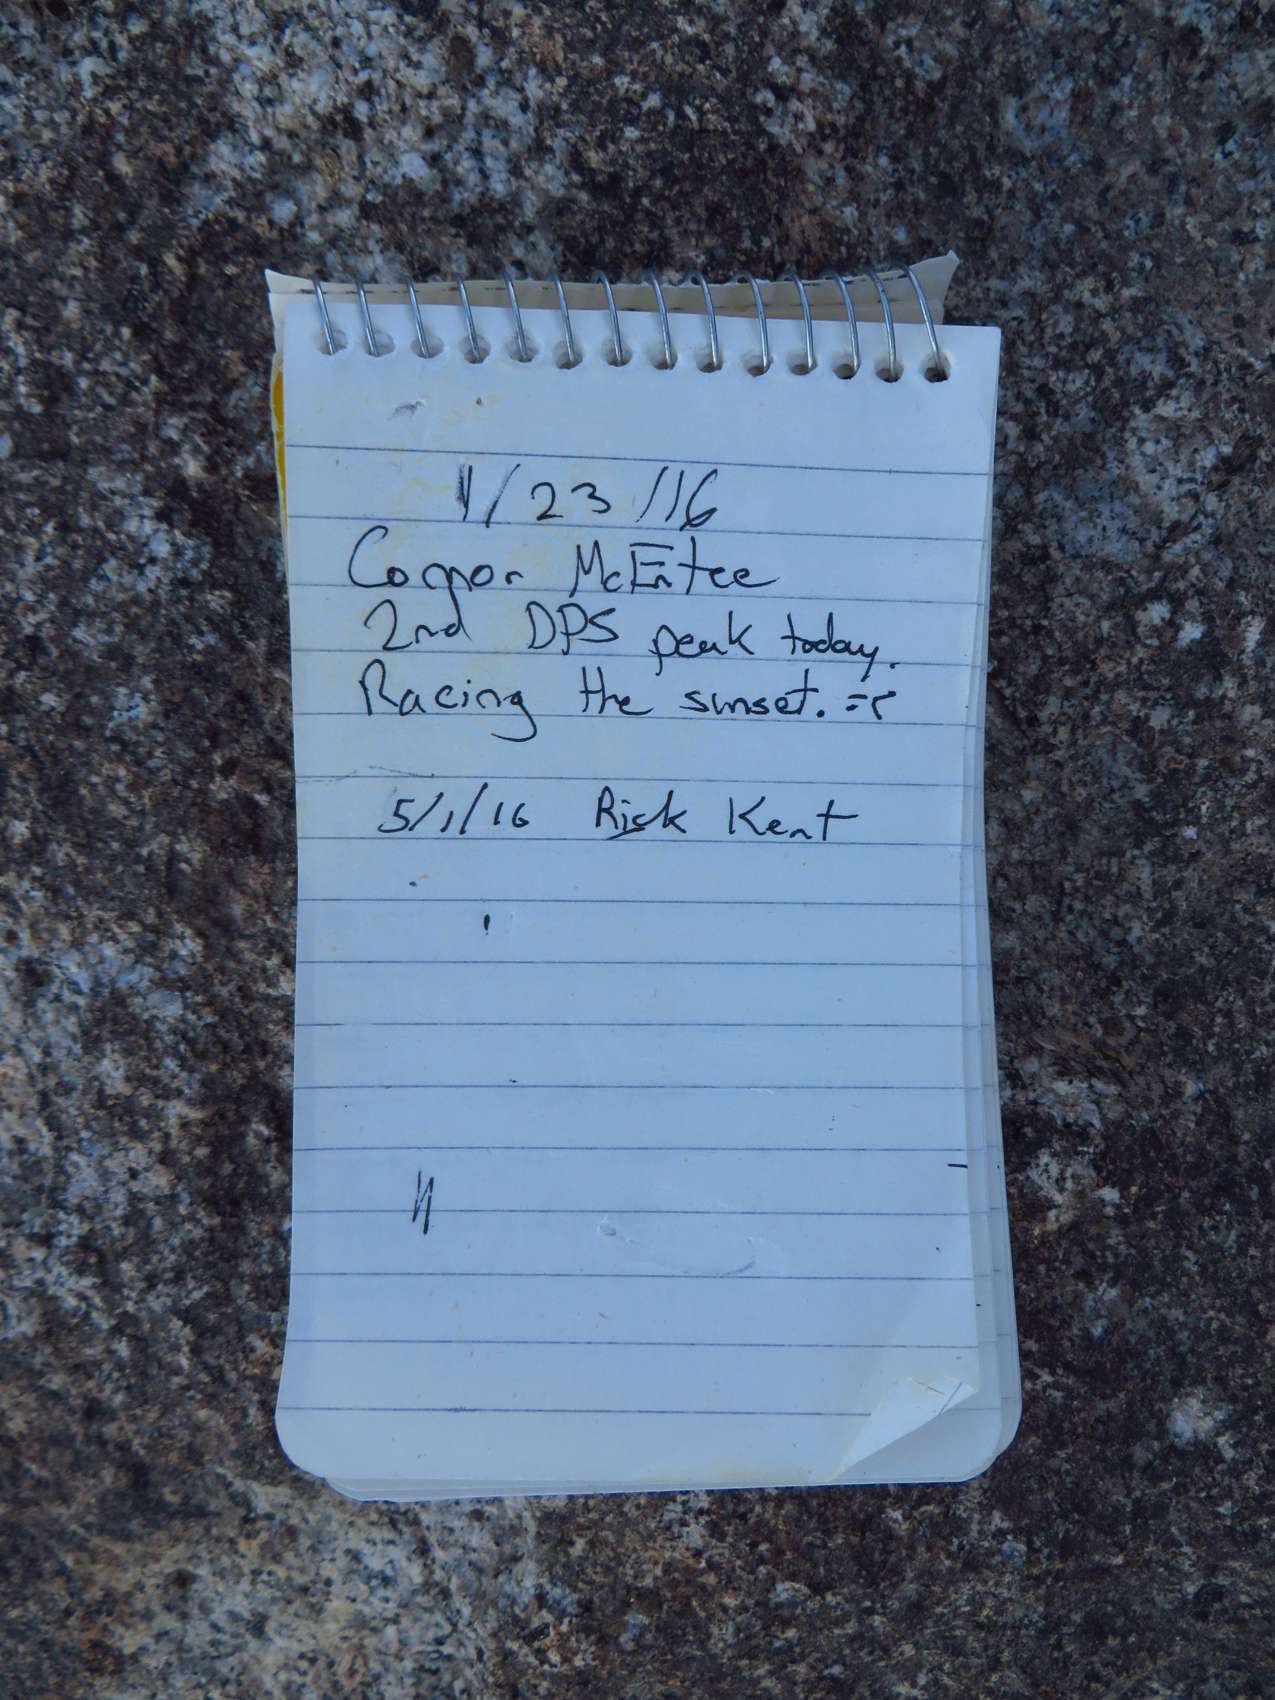 1/23/16
Connor McEntee
2nd DPS peak today.
Racing the sunset. =c
5/1/16 Rick Kent